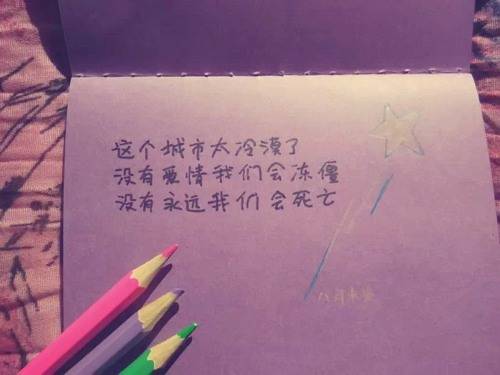 这个城市太冷漠了
没有爱情我们会冻僵
没有永远我们会死亡
八月未央